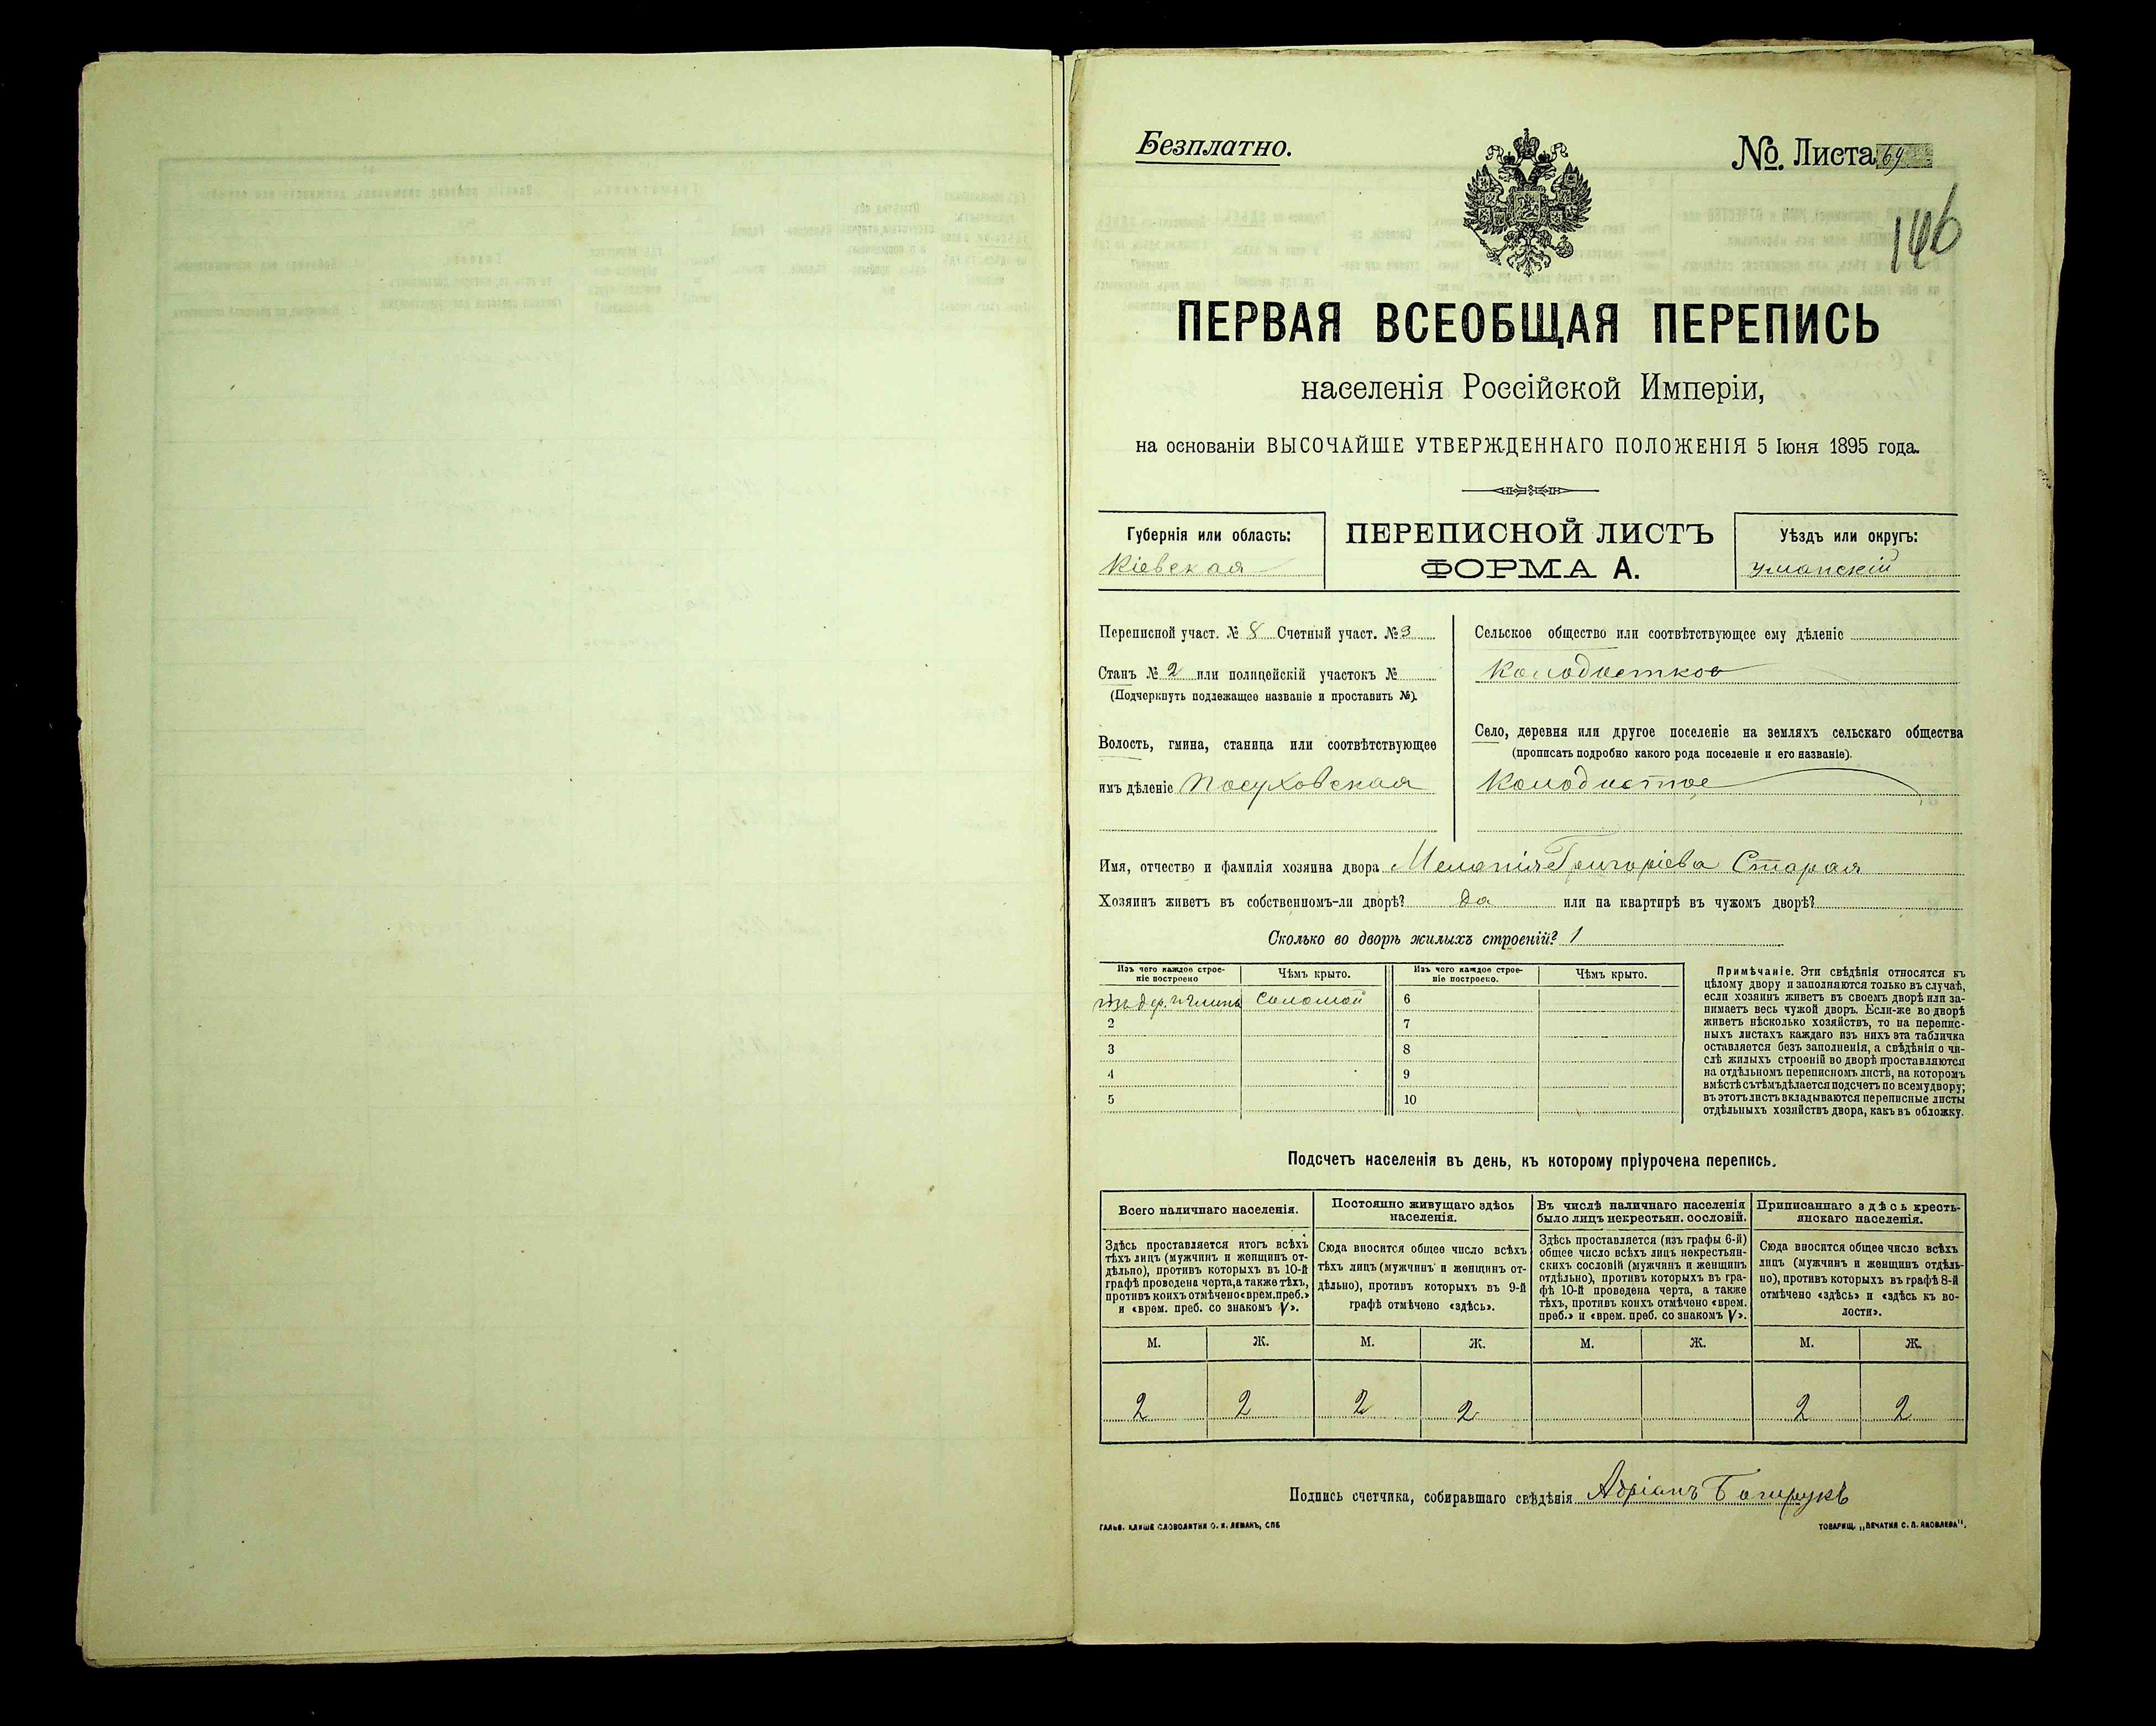 Безплатно.
№ Листа 69
146
ПЕРВАЯ ВСЕОБЩАЯ ПЕРЕПИСЬ
населенія Россійской Имперіи,
на основаніи ВЫСОЧАЙШЕ УТВЕРЖДЕННАГО ПОЛОЖЕНІЯ 5 Іюня 1895 года.
Губернія или область:
Кіевская
ПЕРЕПИСНОЙ ЛИСТЪ
ФОРМА А.
Уѣздъ или округъ:
Уманскій
Переписной участ. № 8 Счетный участ. № 3
Станъ № 2 или полицейскій участокъ №
(Подчеркнуть подлежащее названіе и проставить №).
Волость, гмина, станица или соотвѣтствующее
имъ дѣленіе Посуховская
Сельское общество или соотвѣтствующее ему дѣленіе
Колодистков
Село, деревня или другое поселеніе на земляхъ сельскаго общества
(прописать подробно какого рода поселеніе и его названіе).
Колодистое
Имя, отчество и фамилія хозяина двора Меланія Григоріева Старая
Хозяинъ живетъ въ собственномъ-ли дворѣ? Да или на квартирѣ въ чужомъ дворѣ?
Сколько во дворѣ жилыхъ строеній? 1
Изъ чего каждое строе-
ніе построено
Чѣмъ крыто.
Изъ чего каждое строе-
ніе построено.
Чѣмъ крыто.
изъ дер. и глины Соломой 6
2 7
3 8
4 9
5 10
Примѣчаніе. Эти свѣдѣнія относятся къ
цѣлому двору и заполняются только въ случаѣ,
если хозяинъ живетъ въ своемъ дворѣ или за-
нимаетъ весь чужой дворъ. Если-же во дворѣ
живетъ нѣсколько хозяйствъ, то на перепис-
ныхъ листахъ каждаго изъ нихъ эта табличка
оставляется безъ заполненія, а свѣдѣнія о чи-
слѣ жилыхъ строеній во дворѣ проставляются
на отдѣльномъ переписномъ листѣ, на которомъ
вмѣстѣ съ тѣмъ дѣлается подсчетъ по всему двору;
въ этотъ листъ вкладываются переписные листы
отдѣльныхъ хозяйствъ двора, какъ въ обложку.
Подсчетъ населенія въ день, къ которому пріурочена перепись.
Всего наличнаго населенія.
Здѣсь проставляется итогъ всѣхъ
тѣхъ лицъ (мужчинъ и женщинъ от-
дѣльно), противъ которыхъ въ 10-й
графѣ проведена черта, а также тѣхъ,
противъ коихъ отмѣчено «врем. преб.»
и «врем. преб. со знакомъ V».
Постоянно живущаго здѣсь
населенія.
Сюда вносится общее число всѣхъ
тѣхъ лицъ (мужчинъ и женщинъ от-
дѣльно), противъ которыхъ въ 9-й
графѣ отмѣчено «здѣсь».
Въ числѣ наличнаго населенія
было лицъ некрестьян. сословій.
Здѣсь проставляется (изъ графы 6-й)
общее число всѣхъ лицъ некрестьян-
скихъ сословій (мужчинъ и женщинъ
отдѣльно), противъ которыхъ въ гра-
фѣ 10-й проведена черта, а также
тѣхъ, противъ коихъ отмѣчено «врем.
преб.» и «врем. преб. со знакомъ V».
Приписаннаго здѣсь кресть-
янскаго населенія.
Сюда вносится общее число всѣхъ
лицъ (мужчинъ и женщинъ отдѣль-
но), противъ которыхъ въ графѣ 8-й
отмѣчено «здѣсь» и «здѣсь къ во-
лости».
М. Ж. М. Ж. М. Ж. М. Ж.
2 2 2 2 2 2
Подпись счетчика, собиравшаго свѣдѣнія Адріанъ
ГАЛЬВ. КЛИШЕ СЛОВОЛИТНИ О. И. ЛЕМАНЪ, СПБ
ТОВАРИЩ. „ПЕЧАТНЯ С. П. ЯКОВЛЕВА".